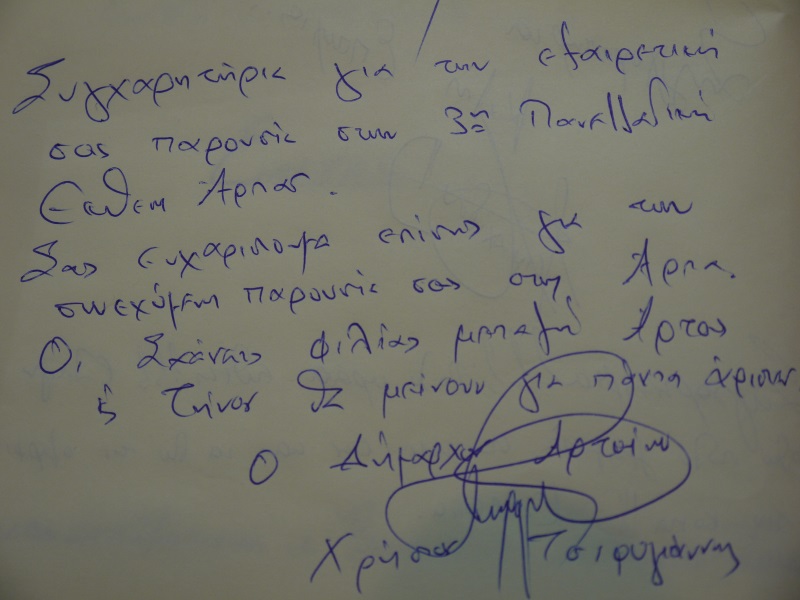 Συγχαρητήρια για την εξαιρετική
σας παρουσία στην 3η Πανελλαδική
Έκθεση Άρτας.
Σας ευχαριστούμε επίσης για την
συνεχόμενη παρουσία σας στην Άρτα.
Οι Σχέσεις φιλίας μεταξύ Άρτας
& Τήνου θα μείνουν για πάντα άριστες
Ο Δήμαρχος Αρταίων
Χρήστος Τσιρογιάννης